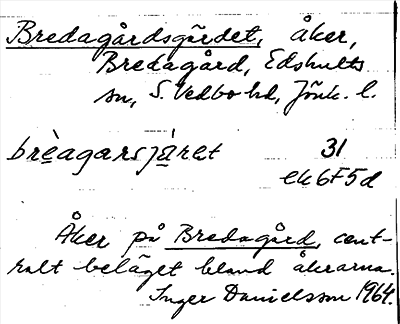 Bredagårdsgärdet, åker,
Bredagård, Edshults
sn, S. Vedbo hd, Jönk. l.
brèagarsjáret 31
ek 6F5d
Åker på Bredagård, cent-
ralt beläget bland åkrarna.
Inger Danielsson 1964.